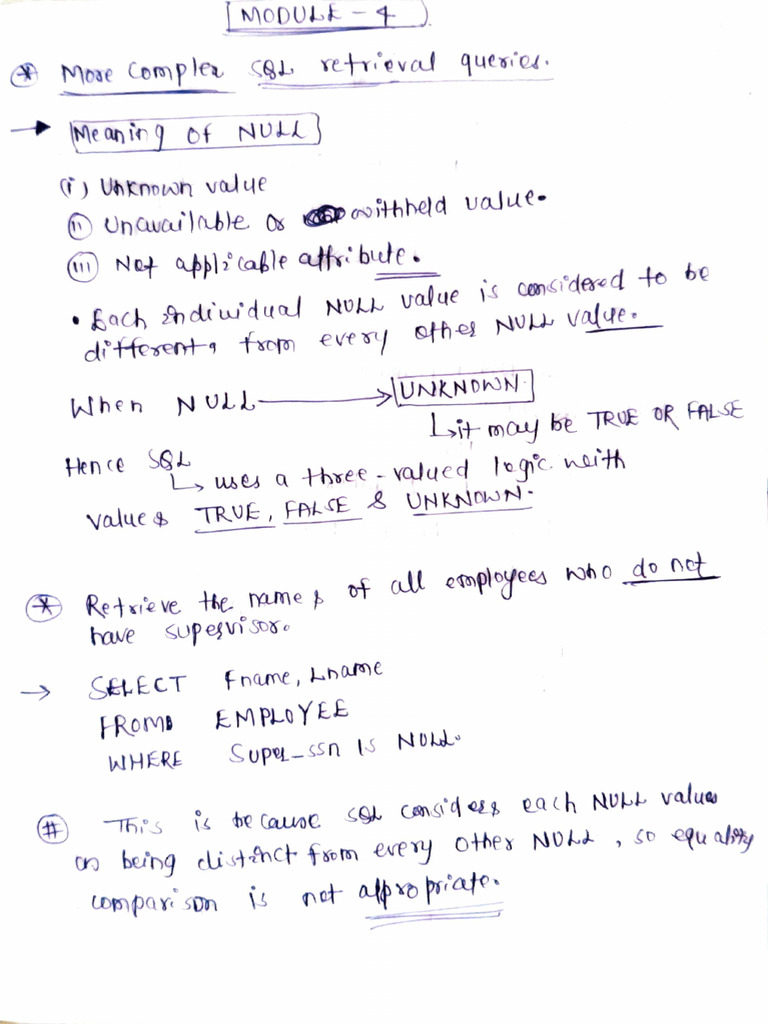 MODULE - 4
* More complex SQL retrieval queries.
→ Meaning of NULL
(i) Unknown value
(ii) Unavailable or withheld value.
(iii) Not applicable attribute.
• Each individual NULL value is considered to be
different, from every other NULL value.
When NULL → UNKNOWN.
↳ it may be TRUE OR FALSE
Hence SQL
↳ uses a three-valued logic with
values TRUE, FALSE & UNKNOWN.
* Retrieve the names of all employees who do not
have supervisor.
→ SELECT Fname, Lname
FROM EMPLOYEE
WHERE Super_ssn IS NULL.
# This is because SQL considers each NULL value
as being distinct from every other NULL, so equality
comparison is not appropriate.